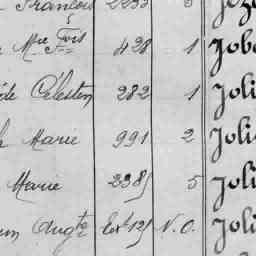 François 2233 5
Mie Fois 428 1 Job
de Célestin 282 1 Joli
h Marie 991 2 Joli
Marie 2385 5 Joli
Augte Ext 125 N.O. Joli